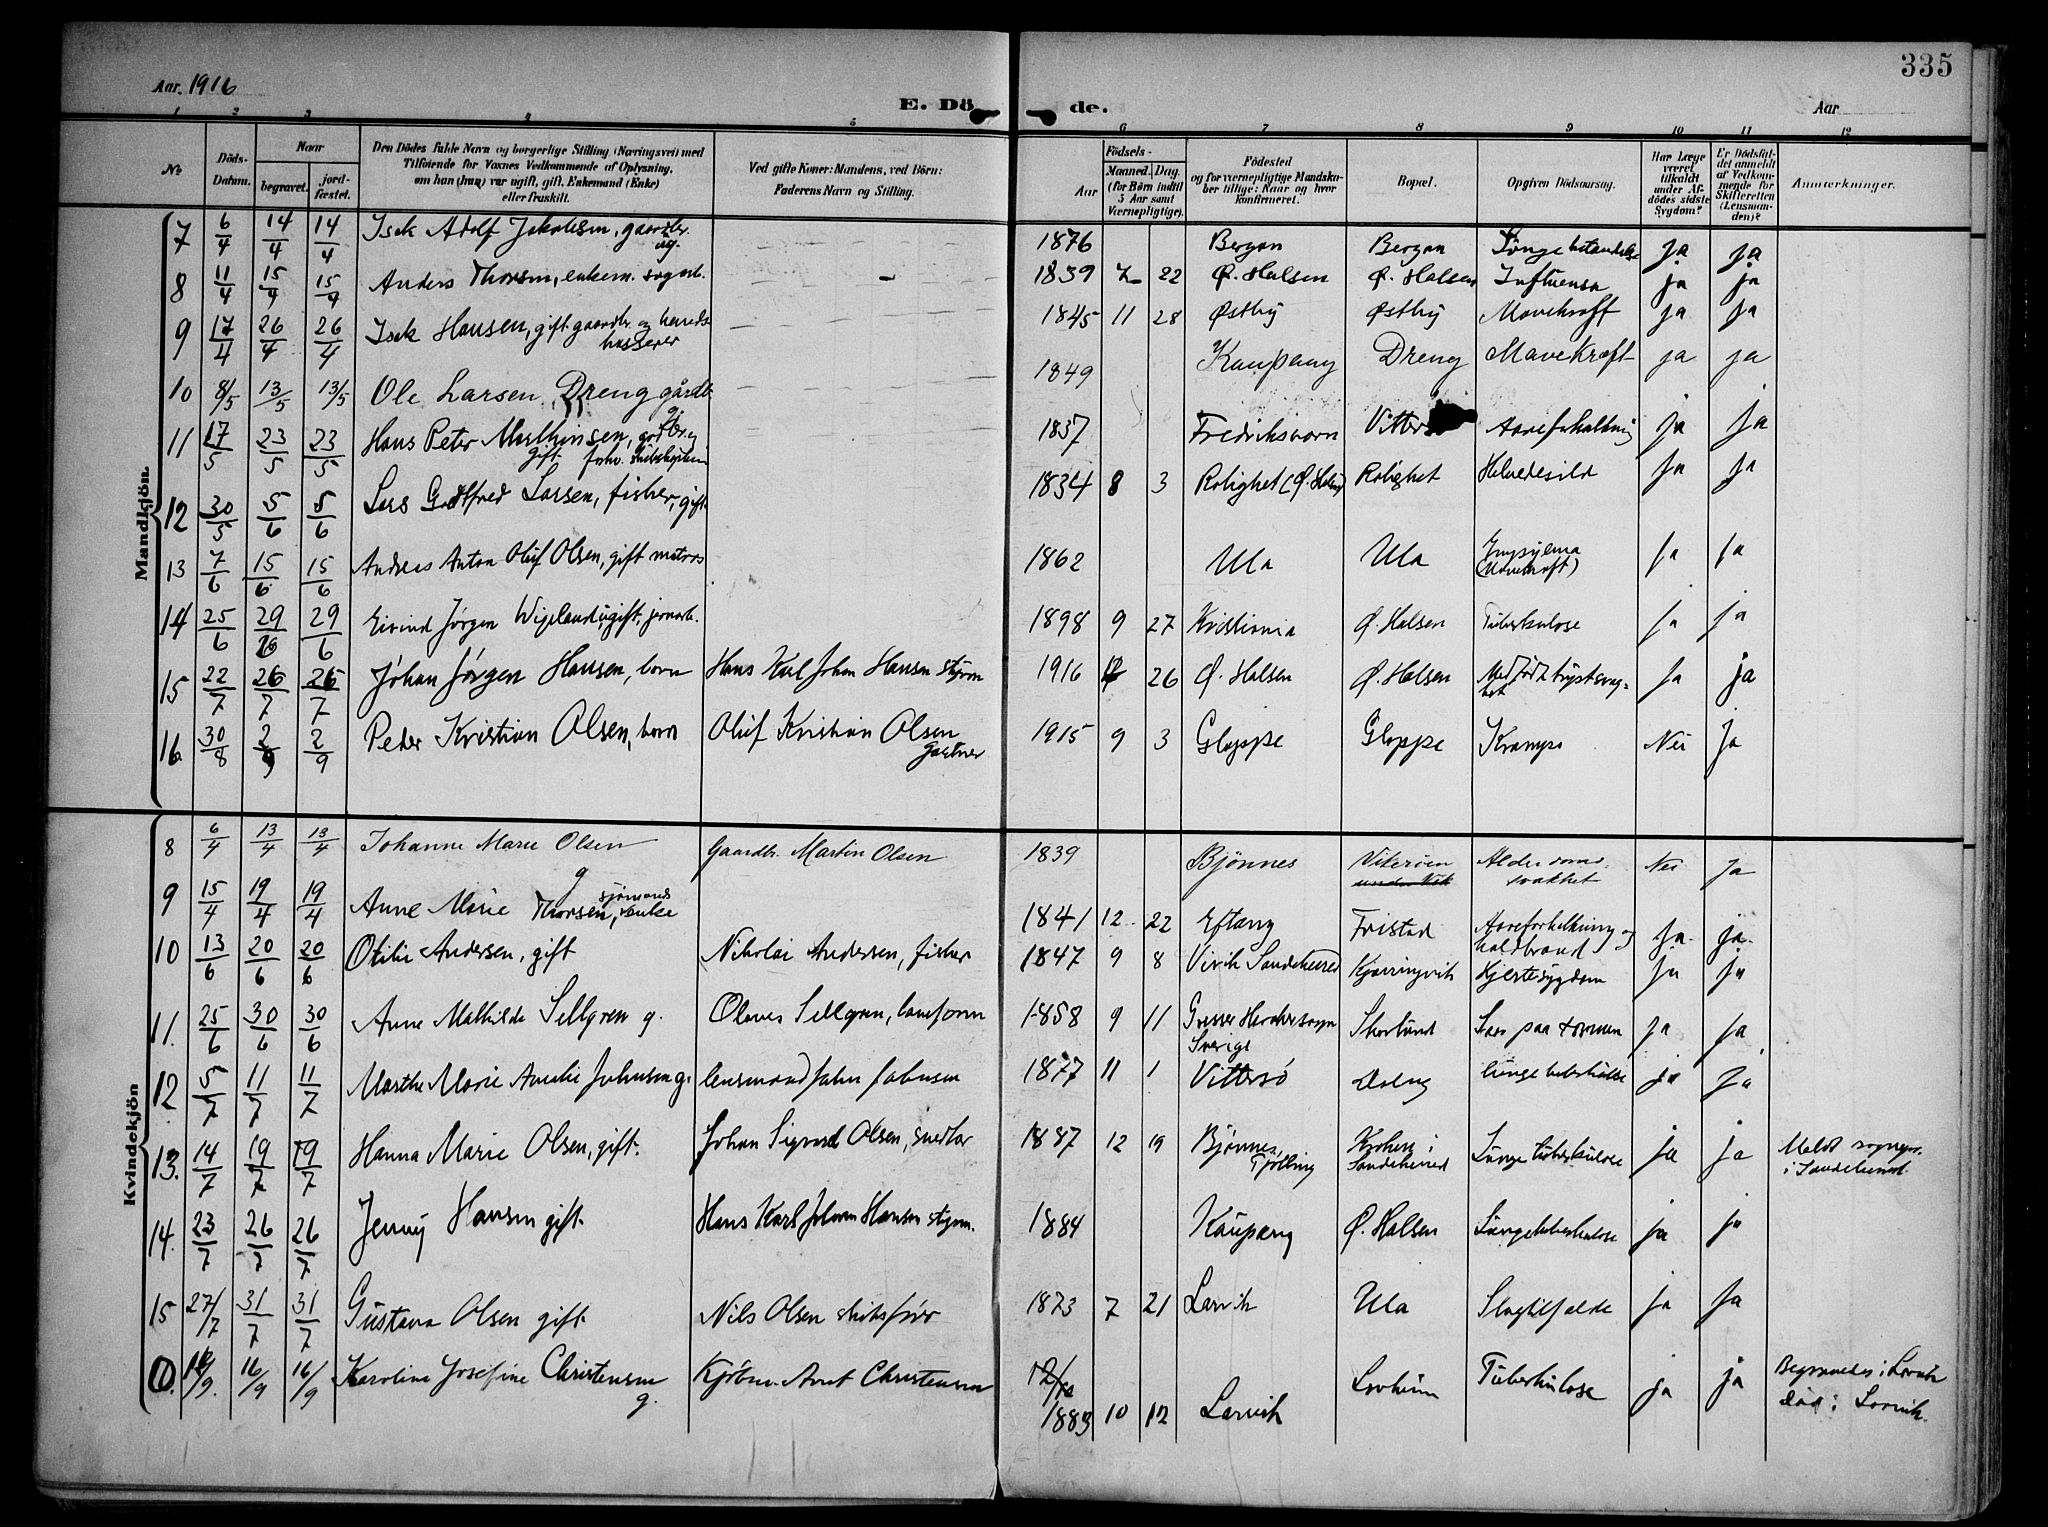 335
Aar. 1916
E. Dö de.
Aar
1 2 3 4 5 6 7 8 9 10 11 12
No
Döds-Datum.
Naar
begravet.
jord-fæstet.
Den Dödes fulde Navn og borgerlige Stilling (Næringsvei) med
Tilföiende for Voxnes Vedkommende af Oplysning,
om han (hun) var ugift, gift, Enkemand (Enke)
eller fraskilt.
Ved gifte Koner: Mandens, ved Börn:
Faderens Navn og Stilling.
Födsels-
Aar
Maaned. Dag.
(for Börn indtil
5 Aar samt
Værnepligtige).
Födested
og for værnepligtige Mandska-
ber tillige: Naar og hvor
konfirmeret.
Bopæl.
Opgiven Dödsaarsag.
Har Læge
været
tilkaldt
under Af-
dödes sidste
Sygdom?
Er Dödsfal-
det anmeldt
af Vedkom-
mende for
Skifteretten
(Lensman-
den)?
Anmærkninger.
Mandkjön.
7 6/4 14/4 14/4 Isak Adolf Jakobsen, gaardbr. ug. 1876 Bergan Bergan Lungebetændelse ja ja
8 11/4 15/4 15/4 Anders Thorsen, enkem. - 1839 7 22 Ø. Halsen Ø. Halsen Influensa ja ja
9 17/4 26/4 26/4 Isak Hansen, gift gaardbr. og herreds kasserer 1845 11 28 Østby Østby Mavekræft ja ja
10 8/5 13/5 13/5 Ole Larsen Dreng gårdb. g. 1849 Kaupang Dreng Mavekræft ja ja
11 17/5 23/5 23/5 Hans Peter Mathinsen, gift 1837 Fredriksværn Vitters Aareforkalkning ja ja
12 30/5 5/6 5/6 Lars Gottfred Larsen, fisker, gift. 1834 8 3 Rolighet (Ø. Halsen) Rolighet Helvedesild ja ja
13 7/6 15/6 15/6 Andreas Anton Oluf Olsen, gift matros 1862 Ula Ula (Mavekræft) ja ja
14 25/6 29/6 29/6 Eivind Jørgen Wigeland, ugift, jernarb. 1898 9 27 Kristiania Ø. Halsen Tuberkulose ja ja
15 22/7 26/7 26/7 Johan Jørgen Hansen, barn Hans Karl Johan Hansen styrm 1916 26 Ø. Halsen Ø. Halsen Medfødt brystsvaghet ja ja
16. 30/8 2/9 2/9 Peder Kristian Olsen, barn Oluf Kristian Olsen Gartner 1915 9 3 Gloppe Gloppe Krampe Nei Ja
Kvindekjön
8 6/4 13/4 13/4 Johanne Marie Olsen g Gaardbr. Martin Olsen 1839 Bjønnes Vikerøen Alderdoms svakhet Nei Ja
9 15/4 19/4 19/4 Anne Marie Thorsen, sjømands enke 1841 12 22 Eftang Fristad Aareforkalkning og koldbrand Ja ja
10 13/6 20/6 20/6 Otilie Andersen, gift Nikolai Andersen, fisker 1847 9 8 Virik Sandeherred Kjærringvik Hjertesygdom ja ja
11. 25/6 30/6 30/6 Anne Mathilde Sellgren g. Olaves Sellgren, 1858 9 11 Sverige Skarlund Saar paa tarmen ja ja
12 5/7 11/7 11/7 Marthe Marie Amalie Johnsen g. lensmand John Johnsen 1877 11 1 Vittersø lungetuberkulose ja ja
13. 14/7 19/7 19/7 Hanna Marie Olsen, gift. Johan Sigvard Olsen, snedker 1887 12 19 Bjønnes, Tjølling i Sandeherred Lungetuberkulose ja ja Meldt sognepr. i Sandeherred
14. 23/7 26/7 26/7 Jenny Hansen gift. Hans Karl Johan Hansen styrm. 1884 Kaupang Ø. Halsen Lungetuberkulose ja ja
15 27/7 31/7 31/7 Gustava Olsen gift. Nils Olsen skibsfører 1873 7 21 Larvik Ula Slagtilfælde ja ja
16/9 16/9 Karoline Josefine Christensen g. Kjøbm. Arnt Christensen 1883 10 12 Larvik Lovheim Tuberkulose ja ja Begravedes i Larvik død i Larvik.